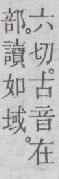 六切。古音在
部。讀如域。